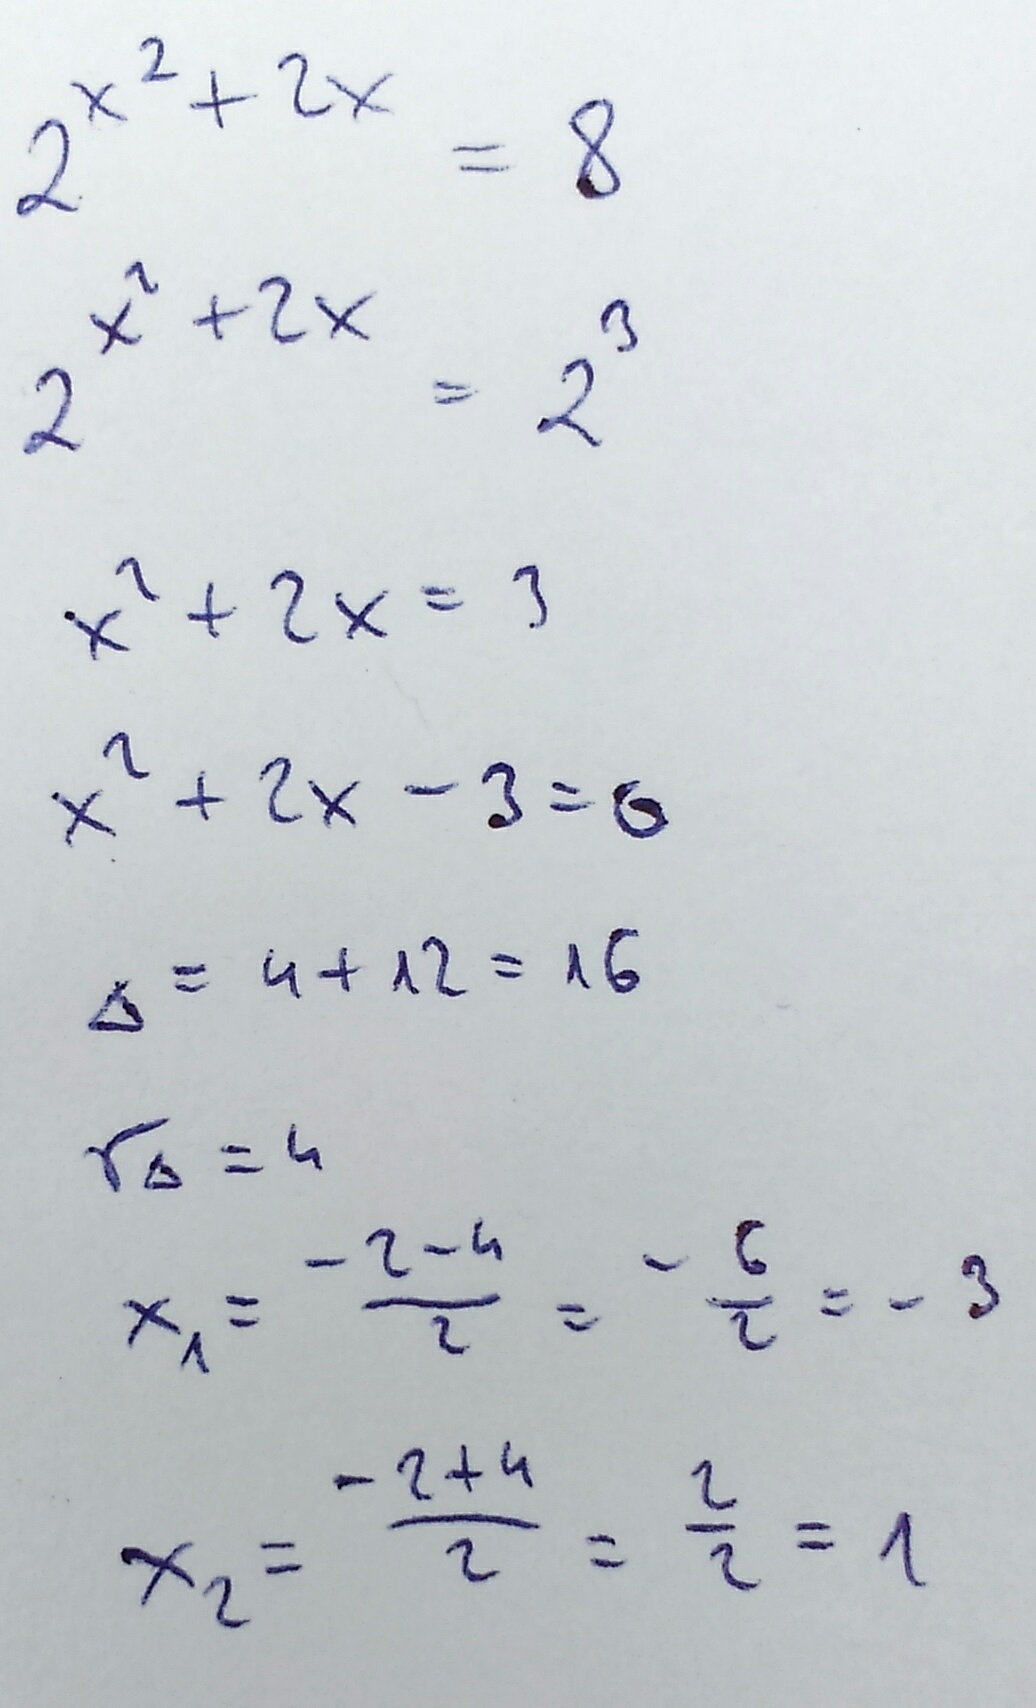 2^{x^2 + 2x} = 8
2^{x^2 + 2x} = 2^3
x^2 + 2x = 3
x^2 + 2x - 3 = 0
Δ = 4 + 12 = 16
√Δ = 4
x_1 = \frac{-2-4}{2} = -\frac{6}{2} = -3
x_2 = \frac{-2+4}{2} = \frac{2}{2} = 1